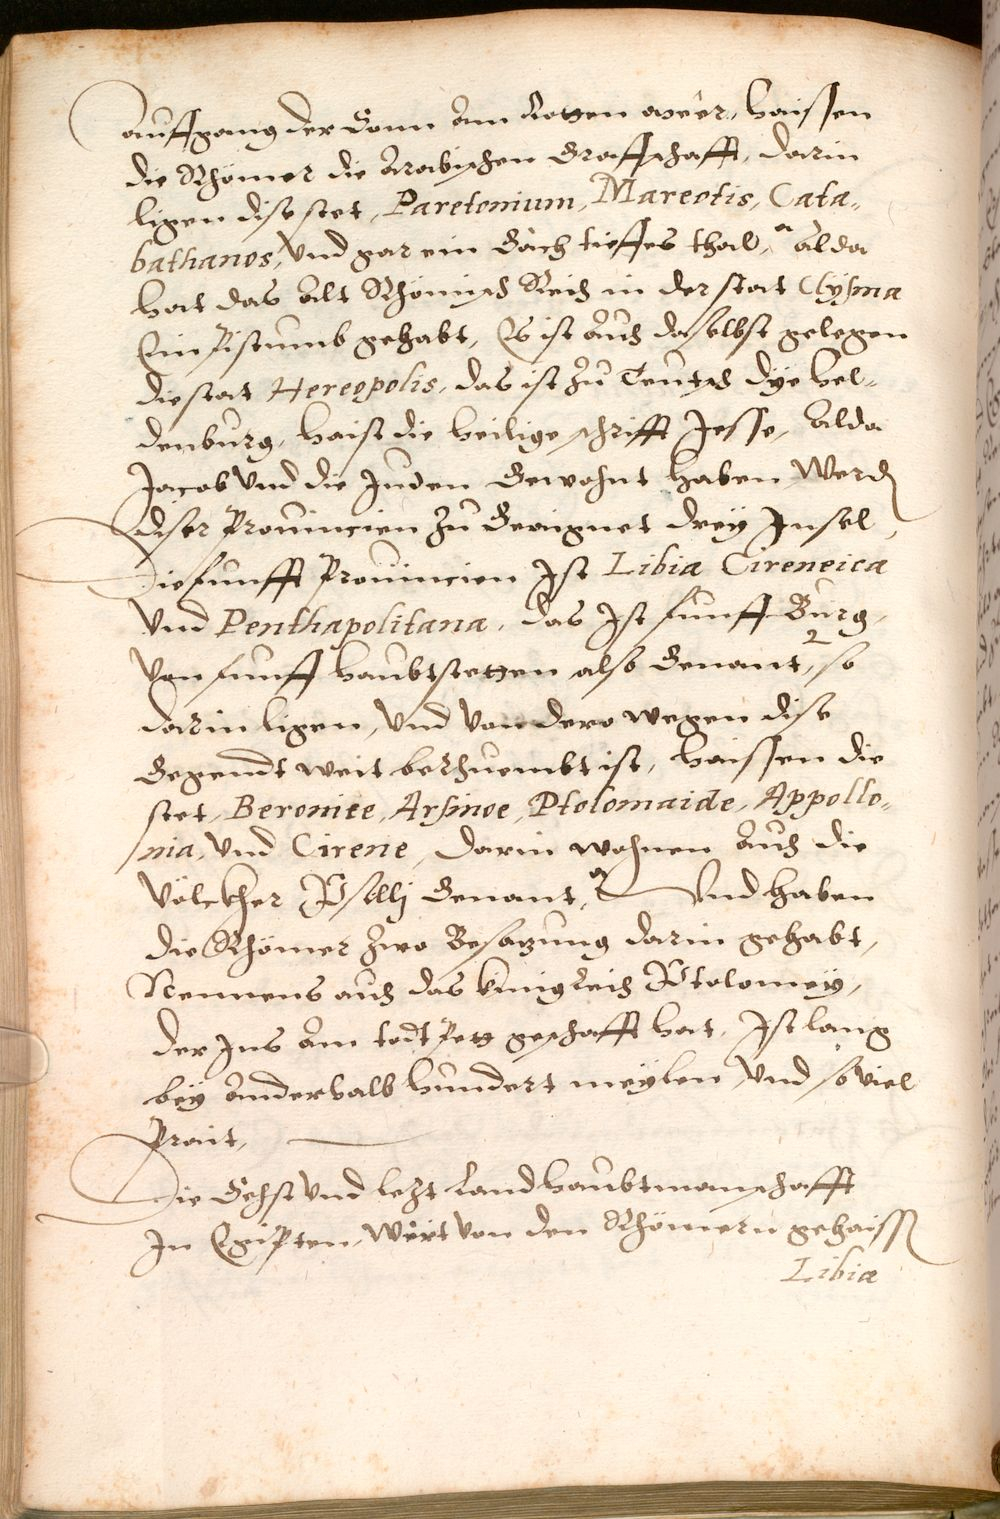 auffgang der Sonn am Rotten meer, haissen
die Rhömer die Arabischen Graffschafft, darin
ligen dise stet, Paretonium, Mareotis, Cata-
bathanos, und gar ein Gäch tieffes thal, a alda
hat das Alt Rhömisch Reich in der stat Clysma
Ein pistumb gehabt, Es ist auch daselbst gelegen
die stat Hereopolis, das ist zu Teutsch dye hel-
denburg, haist die heilige schrifft Jesse, alda
Jacob und die Juden Gewohnt haben, Werdn
diser Provincien zu Geaignet drey Insel,
Die funfft Provincien Ist Libia Cireneica
und Penthapolitana, das Ist funff Burg,
von funff haubtstetten also Genant, 2 so
darin ligen, und von dero wegen dise
Gegendt weit berhuembt ist, haissen die
stet, Beronice, Arsinoe, Ptolomaide, Appollo-
nia, und Cirene, darin wohnen auch die
völckher Psellj Genant, a und haben
die Rhömer zwo Besatzung darin gehabt,
Nennens auch das Kunigreich Ptolomey,
der Ins am todt pett geschafft hat, Ist lang
bey anderhalb hundert meylen und so viel
Prait,
Die Sechst und lezt Landhaubtmanschafft
In Egipten, Wirt von den Rhömern gehaissn
Libia